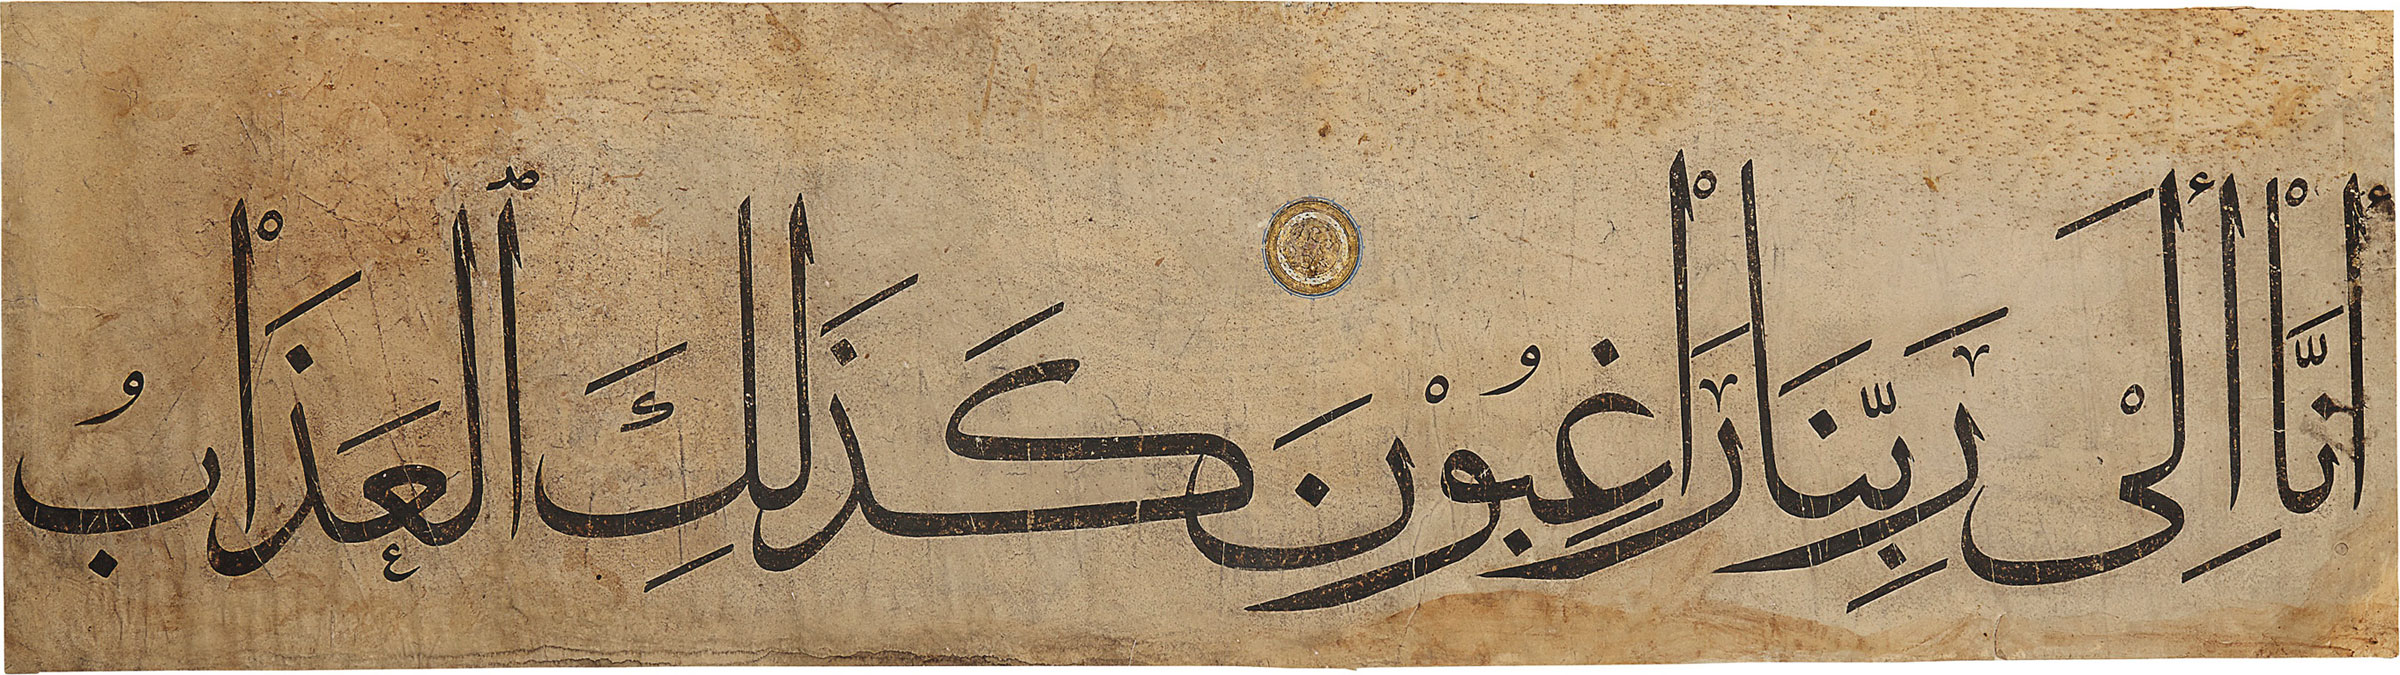 إِنَّا إِلَىٰ رَبِّنَا رَاغِبُونَ كَذَٰلِكَ ٱلْعَذَابُ